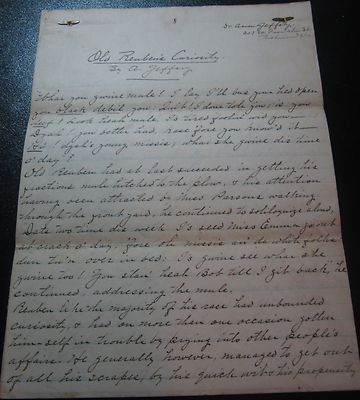 Dr. Anna Jeffery
Old Reuben's Curiosity
By A. Jeffery
What you gwine mule! I say I'll bus you hed open
you black debel you. Quit! I done tole you, is you
heah me. Is tired foolin wid you—
Dyah! you better had, race fore you know'd it—
dyah's young missis, what she gwine dis time
o' day?
Old Reuben had at last succeded in getting his
fractious mule hitched to the plow, & his attention
having been attracted by Miss Parsons walking
through the front yard, he continued to soliloquize aloud,
Date two time dis week I's seed Miss Emma go out
at crack o' day, fore ole missis an' de white folks
dun tu'n over in bed. I's gwine see what she
gwine too! You stan' heah Bob till I git back," he
continued, addressing the mule.
Reuben like the majority of his race had unbounded
curiosity, & had on more than one occasion gotten
him-self in trouble by prying into other people's
affairs. He generally however, managed to get out
of all his scrapes, by his quick wit & his propensity